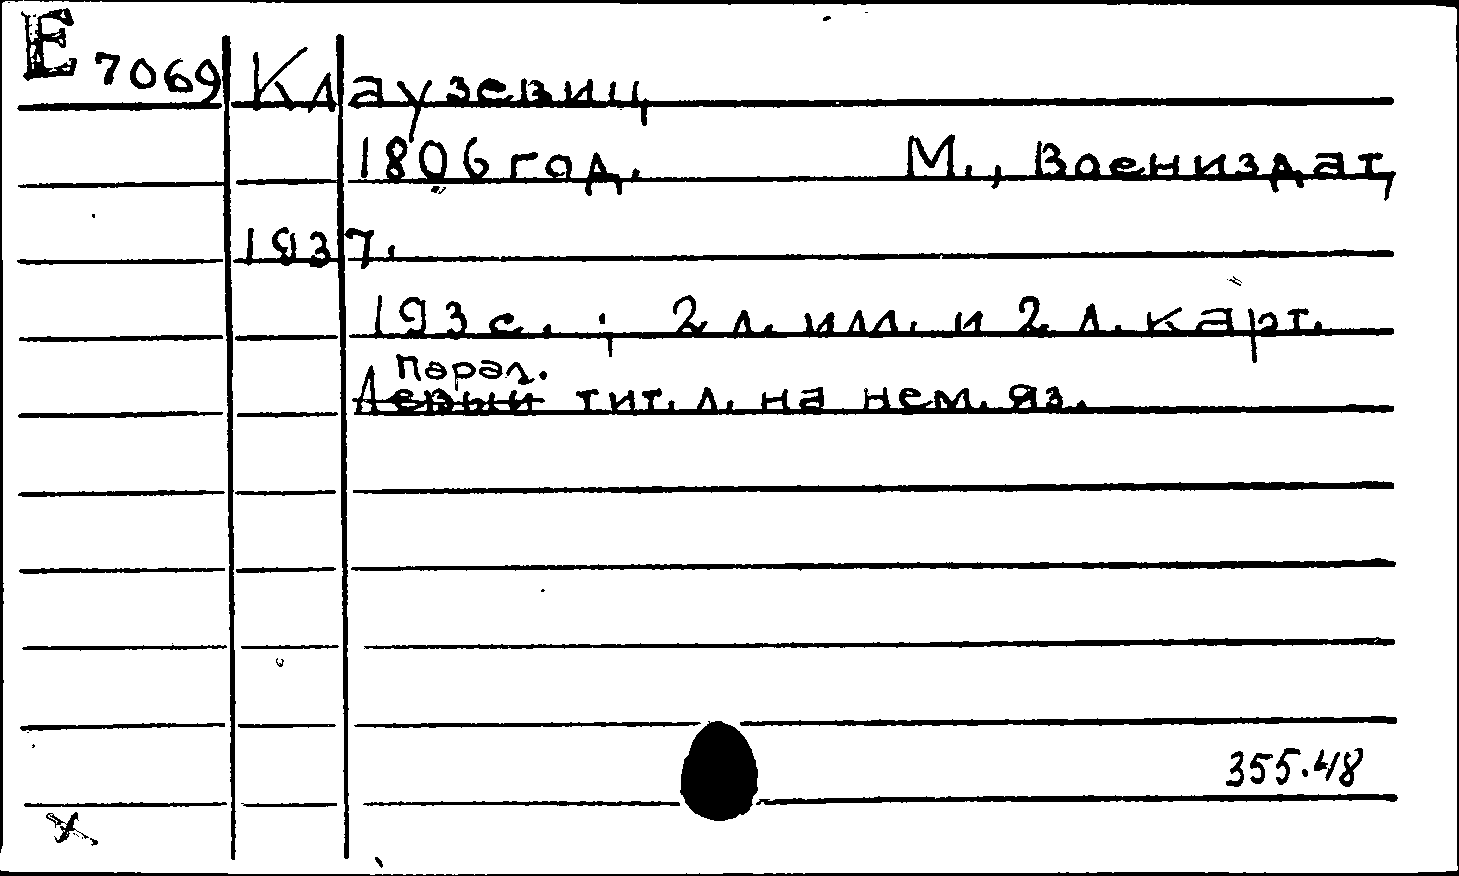 E 7069 Клаузевиц
1806 год. М., Воениздат,
1937.
193 с. ; 2 л. ил. и 2 л. карт.
Парал.
Левый тит. л. на нем. яз.
355.48